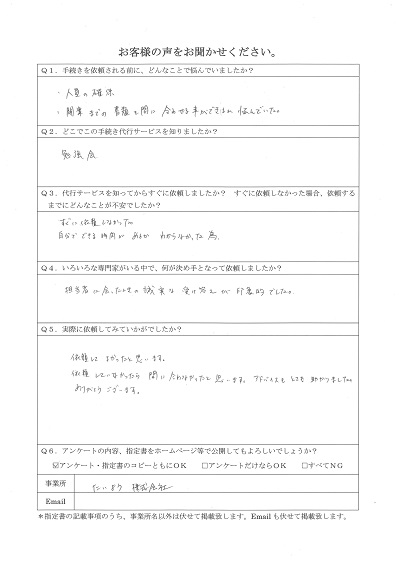 お客様の声をお聞かせください。
Q1．手続きを依頼される前に、どんなことで悩んでいましたか？
・人員の確保
・開業までの書類を間に合わせる事ができるか悩んでいた。
Q2．どこでこの手続き代行サービスを知りましたか？
勉強会
Q3．代行サービスを知ってからすぐに依頼しましたか？　すぐに依頼しなかった場合、依頼する
までにどんなことが不安でしたか？
すぐに依頼しなかった。
自分でできる時間が あるか わからなかった為。
Q4．いろいろな専門家がいる中で、何が決め手となって依頼しましたか？
担当者に会ったときの誠実な受け答えが印象的でした。
Q5．実際に依頼してみていかがでしたか？
依頼して よかったと思います。
依頼していなかったら 間に合わなかったと思います。アドバイスもとても助かりました。
ありがとうございます。
Q6．アンケートの内容、指定書をホームページ等で公開してもよろしいでしょうか？
☑アンケート・指定書のコピーともにOK　□アンケートだけならOK　□すべてNG
事業所
Email
＊指定書の記載事項のうち、事業所名以外は伏せて掲載致します。Emailも伏せて掲載致します。